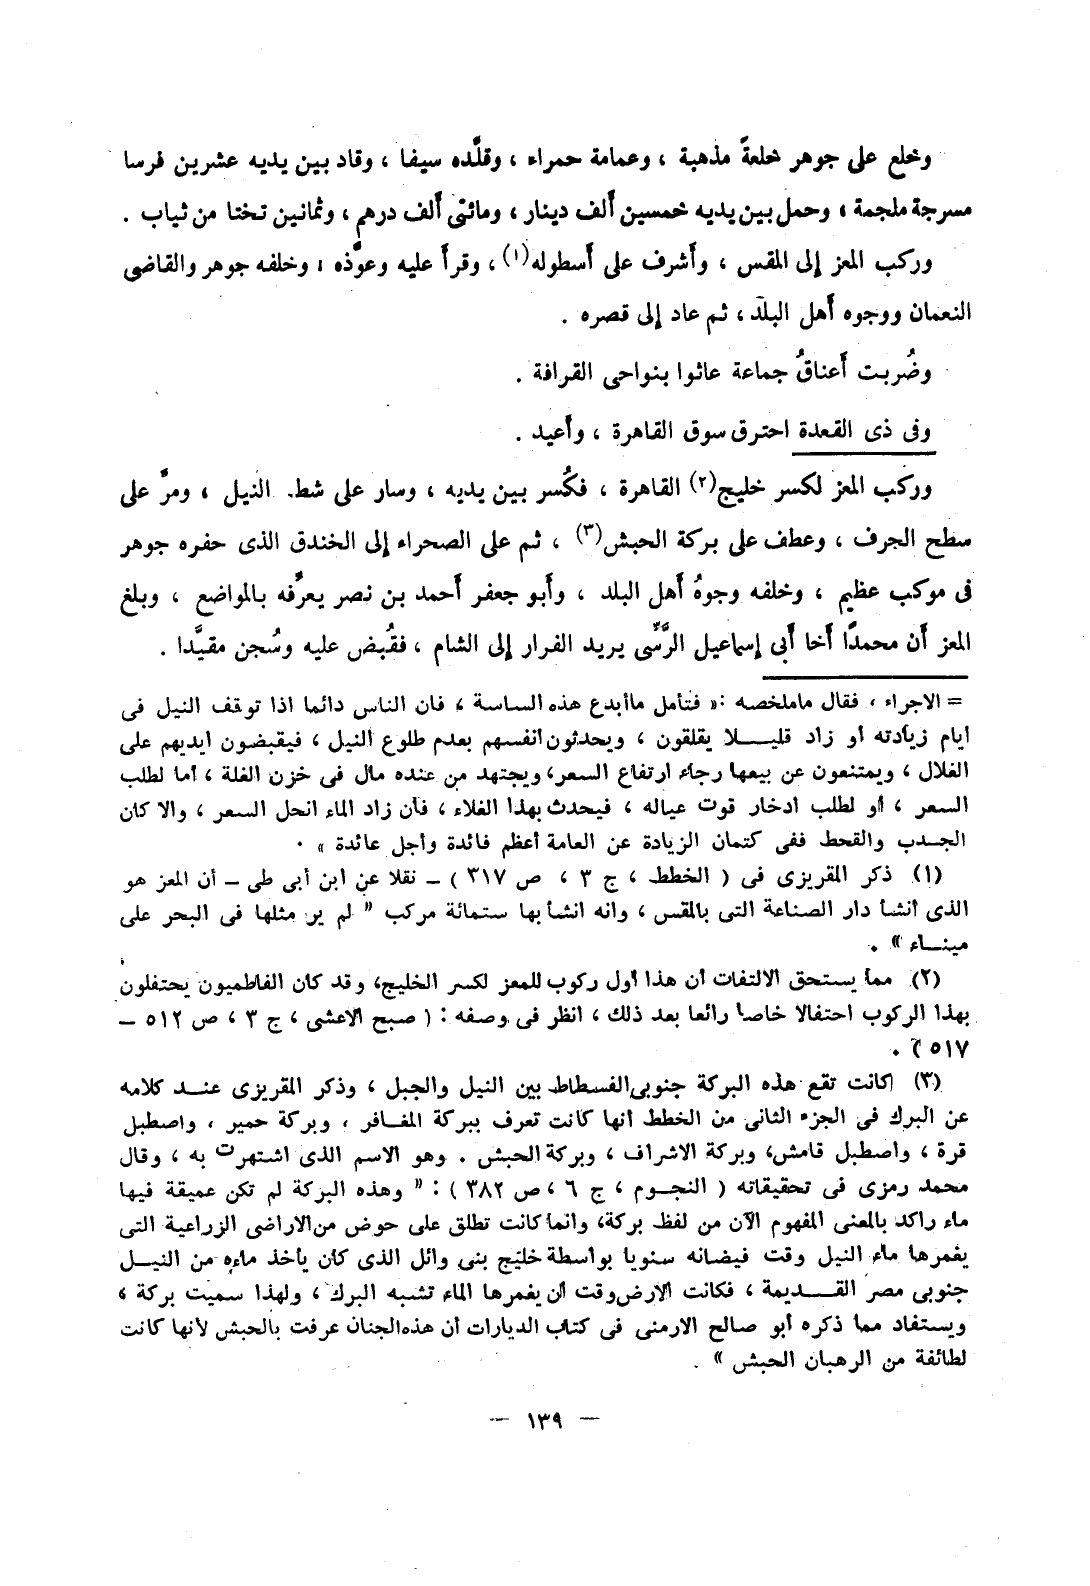 وخلع على جوهر خلعةً مذهبة ، وعمامة حمراء ، وقلَّده سيفا ، وقاد بين يديه عشرين فرسا
مسرجة ملجمة ، وحمل بين يديه خمسين ألف دينار ، ومائتى ألف درهم ، وثمانين تختا من ثياب .
وركب المعز إلى المقس ، وأشرف على أسطوله(١) ، وقرأ عليه وعوَّذه ، وخلفه جوهر والقاضى
النعمان ووجوه أهل البلد ، ثم عاد إلى قصره .
وضُربت أعناقُ جماعة عاثوا بنواحى القرافة .
وفى ذى القعدة احترق سوق القاهرة ، وأعيد .
وركب المعز لكسر خليج(٢) القاهرة ، فكُسر بين يديه ، وسار على شط. النيل ، ومرَّ على
سطح الجرف ، وعطف على بركة الحبش(٣) ، ثم على الصحراء إلى الخندق الذى حفره جوهر
فى موكب عظيم ، وخلفه وجوهُ أهل البلد ، وأبو جعفر أحمد بن نصر يعرِّفه بالمواضع ، وبلغ
المعز أن محمدًا أخا أبى إسماعيل الرَّسِّى يريد الفرار إلى الشام ، فقُبض عليه وسُجن مقيَّدا .
= الاجراء ، فقال ماملخصه : « فتأمل ماأبدع هذه الساسة ، فان الناس دائما اذا توقف النيل فى
أيام زيادته أو زاد قليلا يقلقون ، ويحدثون أنفسهم بعدم طلوع النيل ، فيقبضون أيديهم على
الغلال ، ويمتنعون عن بيعها رجاء ارتفاع السعر، ويجتهد من عنده مال فى خزن الغلة ، أما لطلب
السعر ، أو لطلب ادخار قوت عياله ، فيحدث بهذا الغلاء ، فان زاد الماء انحل السعر ، والا كان
الجدب والقحط ففى كتمان الزيادة عن العامة أعظم فائدة وأجل عائدة » .
(١) ذكر المقريزى فى ( الخطط ، ج ٣ ، ص ٣١٧ ) – نقلا عن ابن أبى طى – أن المعز هو
الذى أنشأ دار الصناعة التى بالمقس ، وانه أنشأ بها ستمائة مركب « لم ير مثلها فى البحر على
ميناء » .
(٢) مما يستحق الالتفات أن هذا أول ركوب للمعز لكسر الخليج، وقد كان الفاطميون يحتفلون
بهذا الركوب احتفالا خاصا رائعا بعد ذلك ، انظر فى وصفه : ( صبح الاعشى ، ج ٣ ، ص ٥١٢ –
٥١٧ ) .
(٣) كانت تقع هذه البركة جنوبى الفسطاط بين النيل والجبل ، وذكر المقريزى عند كلامه
عن البرك فى الجزء الثانى من الخطط أنها كانت تعرف ببركة المغافر ، وبركة حمير ، واصطبل
قرة ، واصطبل قامش، وبركة الاشراف ، وبركة الحبش . وهو الاسم الذى اشتهرت به ، وقال
محمد رمزى فى تحقيقاته ( النجوم ، ج ٦ ، ص ٣٨٢ ) : « وهذه البركة لم تكن عميقة فيها
ماء راكد بالمعنى المفهوم الآن من لفظ بركة، وانما كانت تطلق على حوض من الاراضى الزراعية التى
يغمرها ماء النيل وقت فيضانه سنويا بواسطة خليج بنى وائل الذى كان يأخذ ماءه من النيل
جنوبى مصر القديمة ، فكانت الارض وقت أن يغمرها الماء تشبه البرك ، ولهذا سميت بركة ،
ويستفاد مما ذكره أبو صالح الارمنى فى كتاب الديارات أن هذه الجنان عرفت بالحبش لأنها كانت
لطائفة من الرهبان الحبش » .
– ١٣٩ –